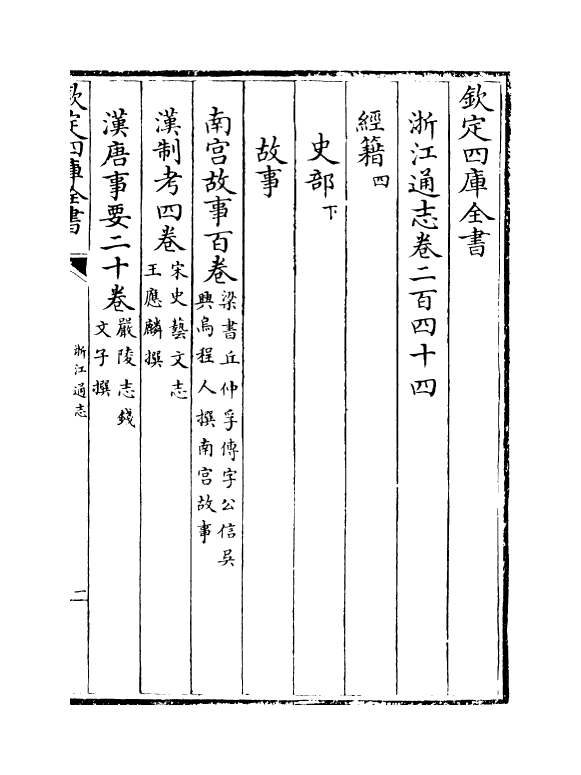 欽定四庫全書
浙江通志卷二百四十四
經籍四
史部下
故事
南宫故事百卷梁書丘仲孚傳字公信吳
興烏程人撰南宫故事
漢制考四卷宋史藝文志
王應麟撰
漢唐事要二十卷嚴陵志錢
文子撰
欽定四庫全書
浙江通志
二